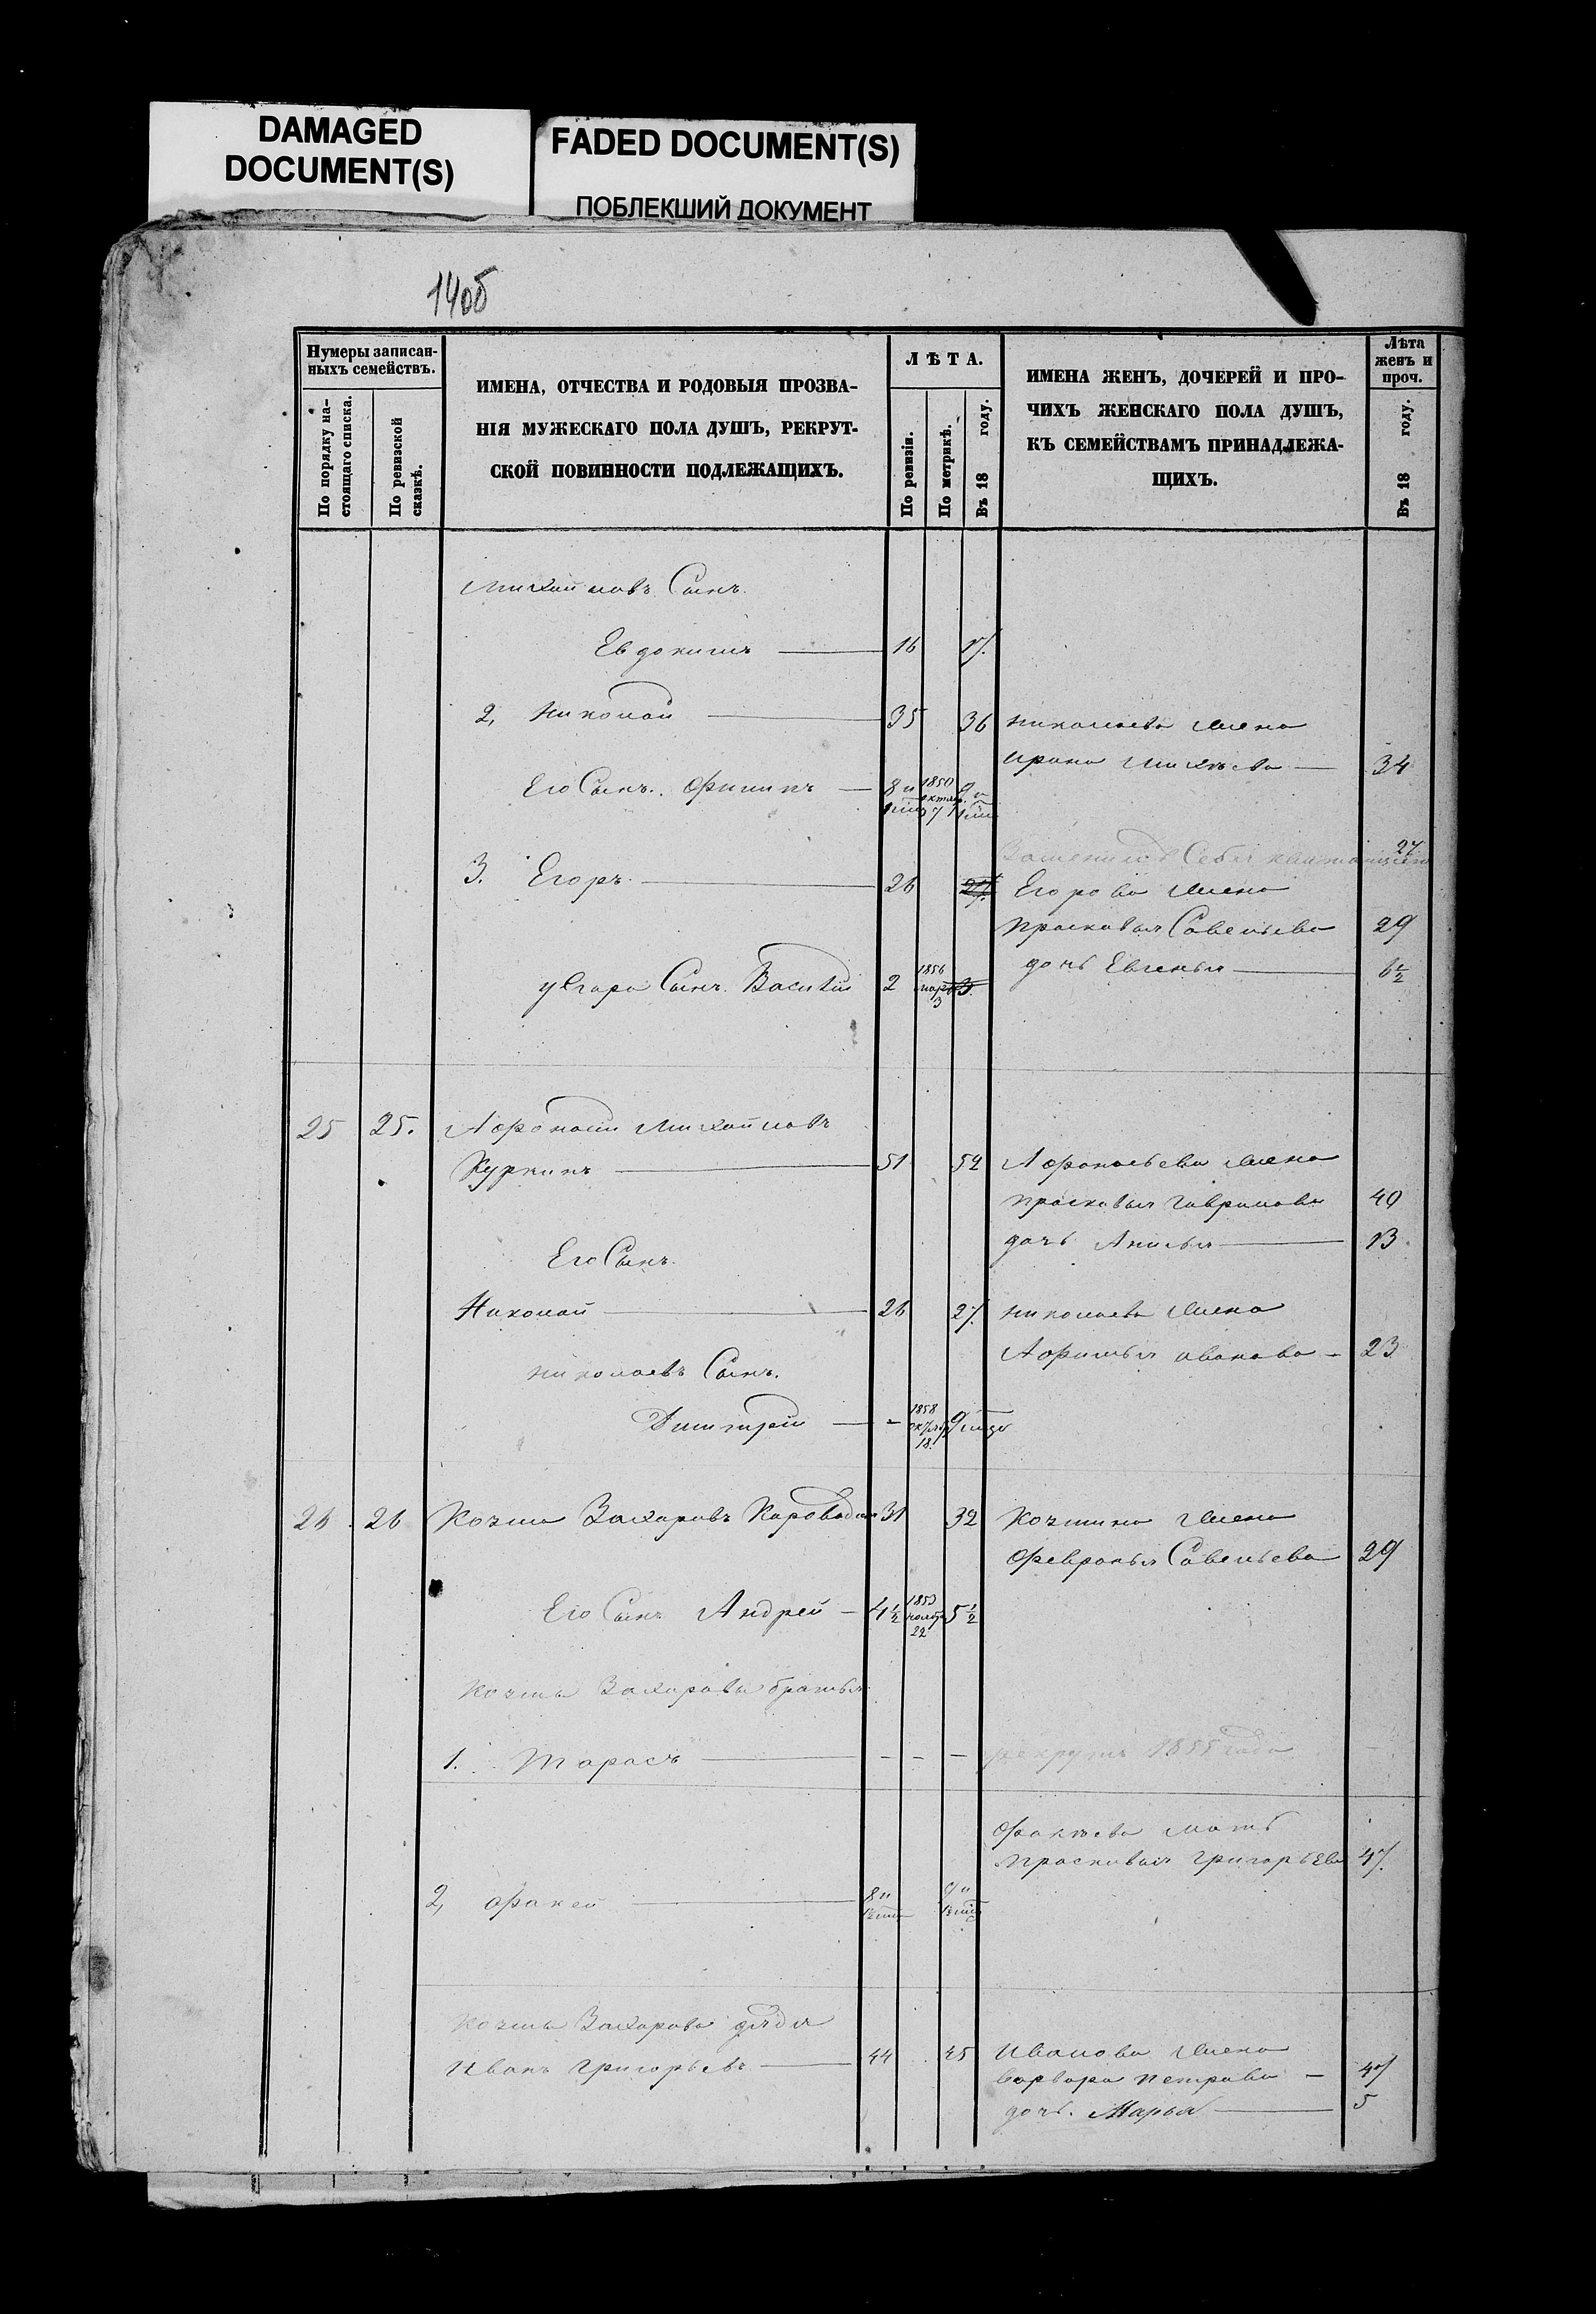 DAMAGED
DOCUMENT(S)
FADED DOCUMENT(S)
ПОБЛЕКШИЙ ДОКУМЕНТ
14об
Нумеры записан-
ныхъ семействъ.
По порядку на-
стоящаго списка.
По ревизской
сказкѣ.
ИМЕНА, ОТЧЕСТВА И РОДОВЫЯ ПРОЗВА-
НІЯ МУЖЕСКАГО ПОЛА ДУШЪ, РЕКРУТ-
СКОЙ ПОВИННОСТИ ПОДЛЕЖАЩИХЪ.
ЛѢТА.
По ревизіи.
По метрикѣ.
Въ 18 году.
ИМЕНА ЖЕНЪ, ДОЧЕРЕЙ И ПРО-
ЧИХЪ ЖЕНСКАГО ПОЛА ДУШЪ,
КЪ СЕМЕЙСТВАМЪ ПРИНАДЛЕЖА-
ЩИХЪ.
Лѣта
женъ и
проч.
Въ 18 году.
Михайловъ Сынъ.
Евдокимъ 16 17.
2, Николай 35 36 Николаева жена
Ирина Михѣева 34
Его Сынъ. Филипъ 8 и 1850 9 и
7
Заменилъ Себя квитанціею 27
3. Егоръ. 26 27. Егорова жена
Прасковья Савельева 29
дочь Евгенья 6 1/2
у Егора Сынъ Василій 2 1856 мар. 3 3.
25 25. Афонасій Михайловъ
Куркинъ 51 52 Афонасьева жена
Прасковья Гаврилова 49
дочь Анисья 13.
Его Сынъ.
Николай 26 27. Николаева жена
Афимья Иванова 23
Николаевъ Сынъ.
Дмитрей - 1858 18. 9 мцо
26. 26 Козма Захаровъ 31 32 Козмина жена
Февронья Савельева 29
Его Сынъ Андрей 4 1/2 1853 ноября 22 5 1/2
Козмы Захарова братья
1. Тарасъ - - - рекрутъ 1855 года
Факѣева мать
Прасковья Григорьева 47.
2, Факей 8 и 9 и
Козмы Захарова дядя
Иванъ Григорьевъ 44 45 Иванова жена
Варвара Петрова 47
дочь. Марья 5